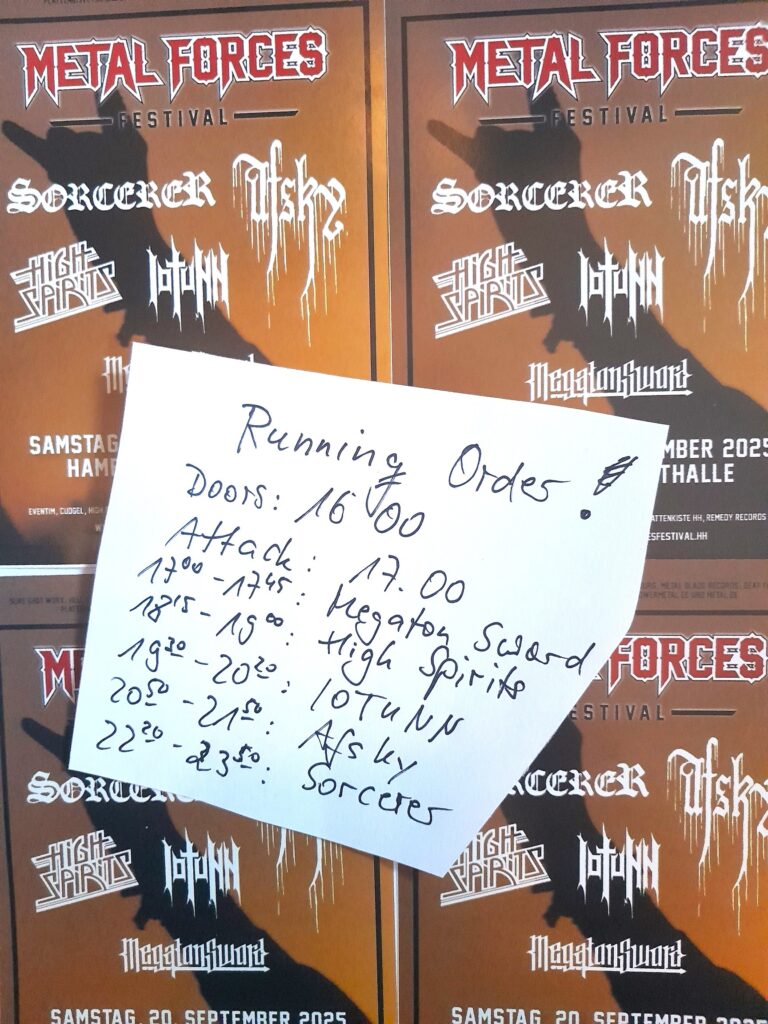 METAL FORCES
FESTIVAL
SORCERER Afsky
HIGH SPIRITS IOTUNN
SAMSTAG
HAMB
METAL FORCES
FESTIVAL
SORCERER Afsky
HIGH SPIRITS IOTUNN
MegatonSword
MBER 2025
THALLE
ATTENKISTE HH, REMEDY RECORDS
ESFESTIVAL.HH
Running Order!
Doors: 16 00
Attack: 17.00
17 00 - 17 45: Megaton Sword
18 15 - 19 00: High Spirits
19 30 - 20 20: IOTUNN
20 50 - 21 50: Afsky
22 20 - 23 50: Sorcerer
SORCERER
HIGH SPIRITS IOTUNN
MegatonSword
SAMSTAG, 20. SEPTEMBER 2025
FORCES
FESTIVAL
SORCERER Afsky
HIGH SPIRITS IOTUNN
MegatonSword
SAMSTAG, 20. SEPTEMBER 2025